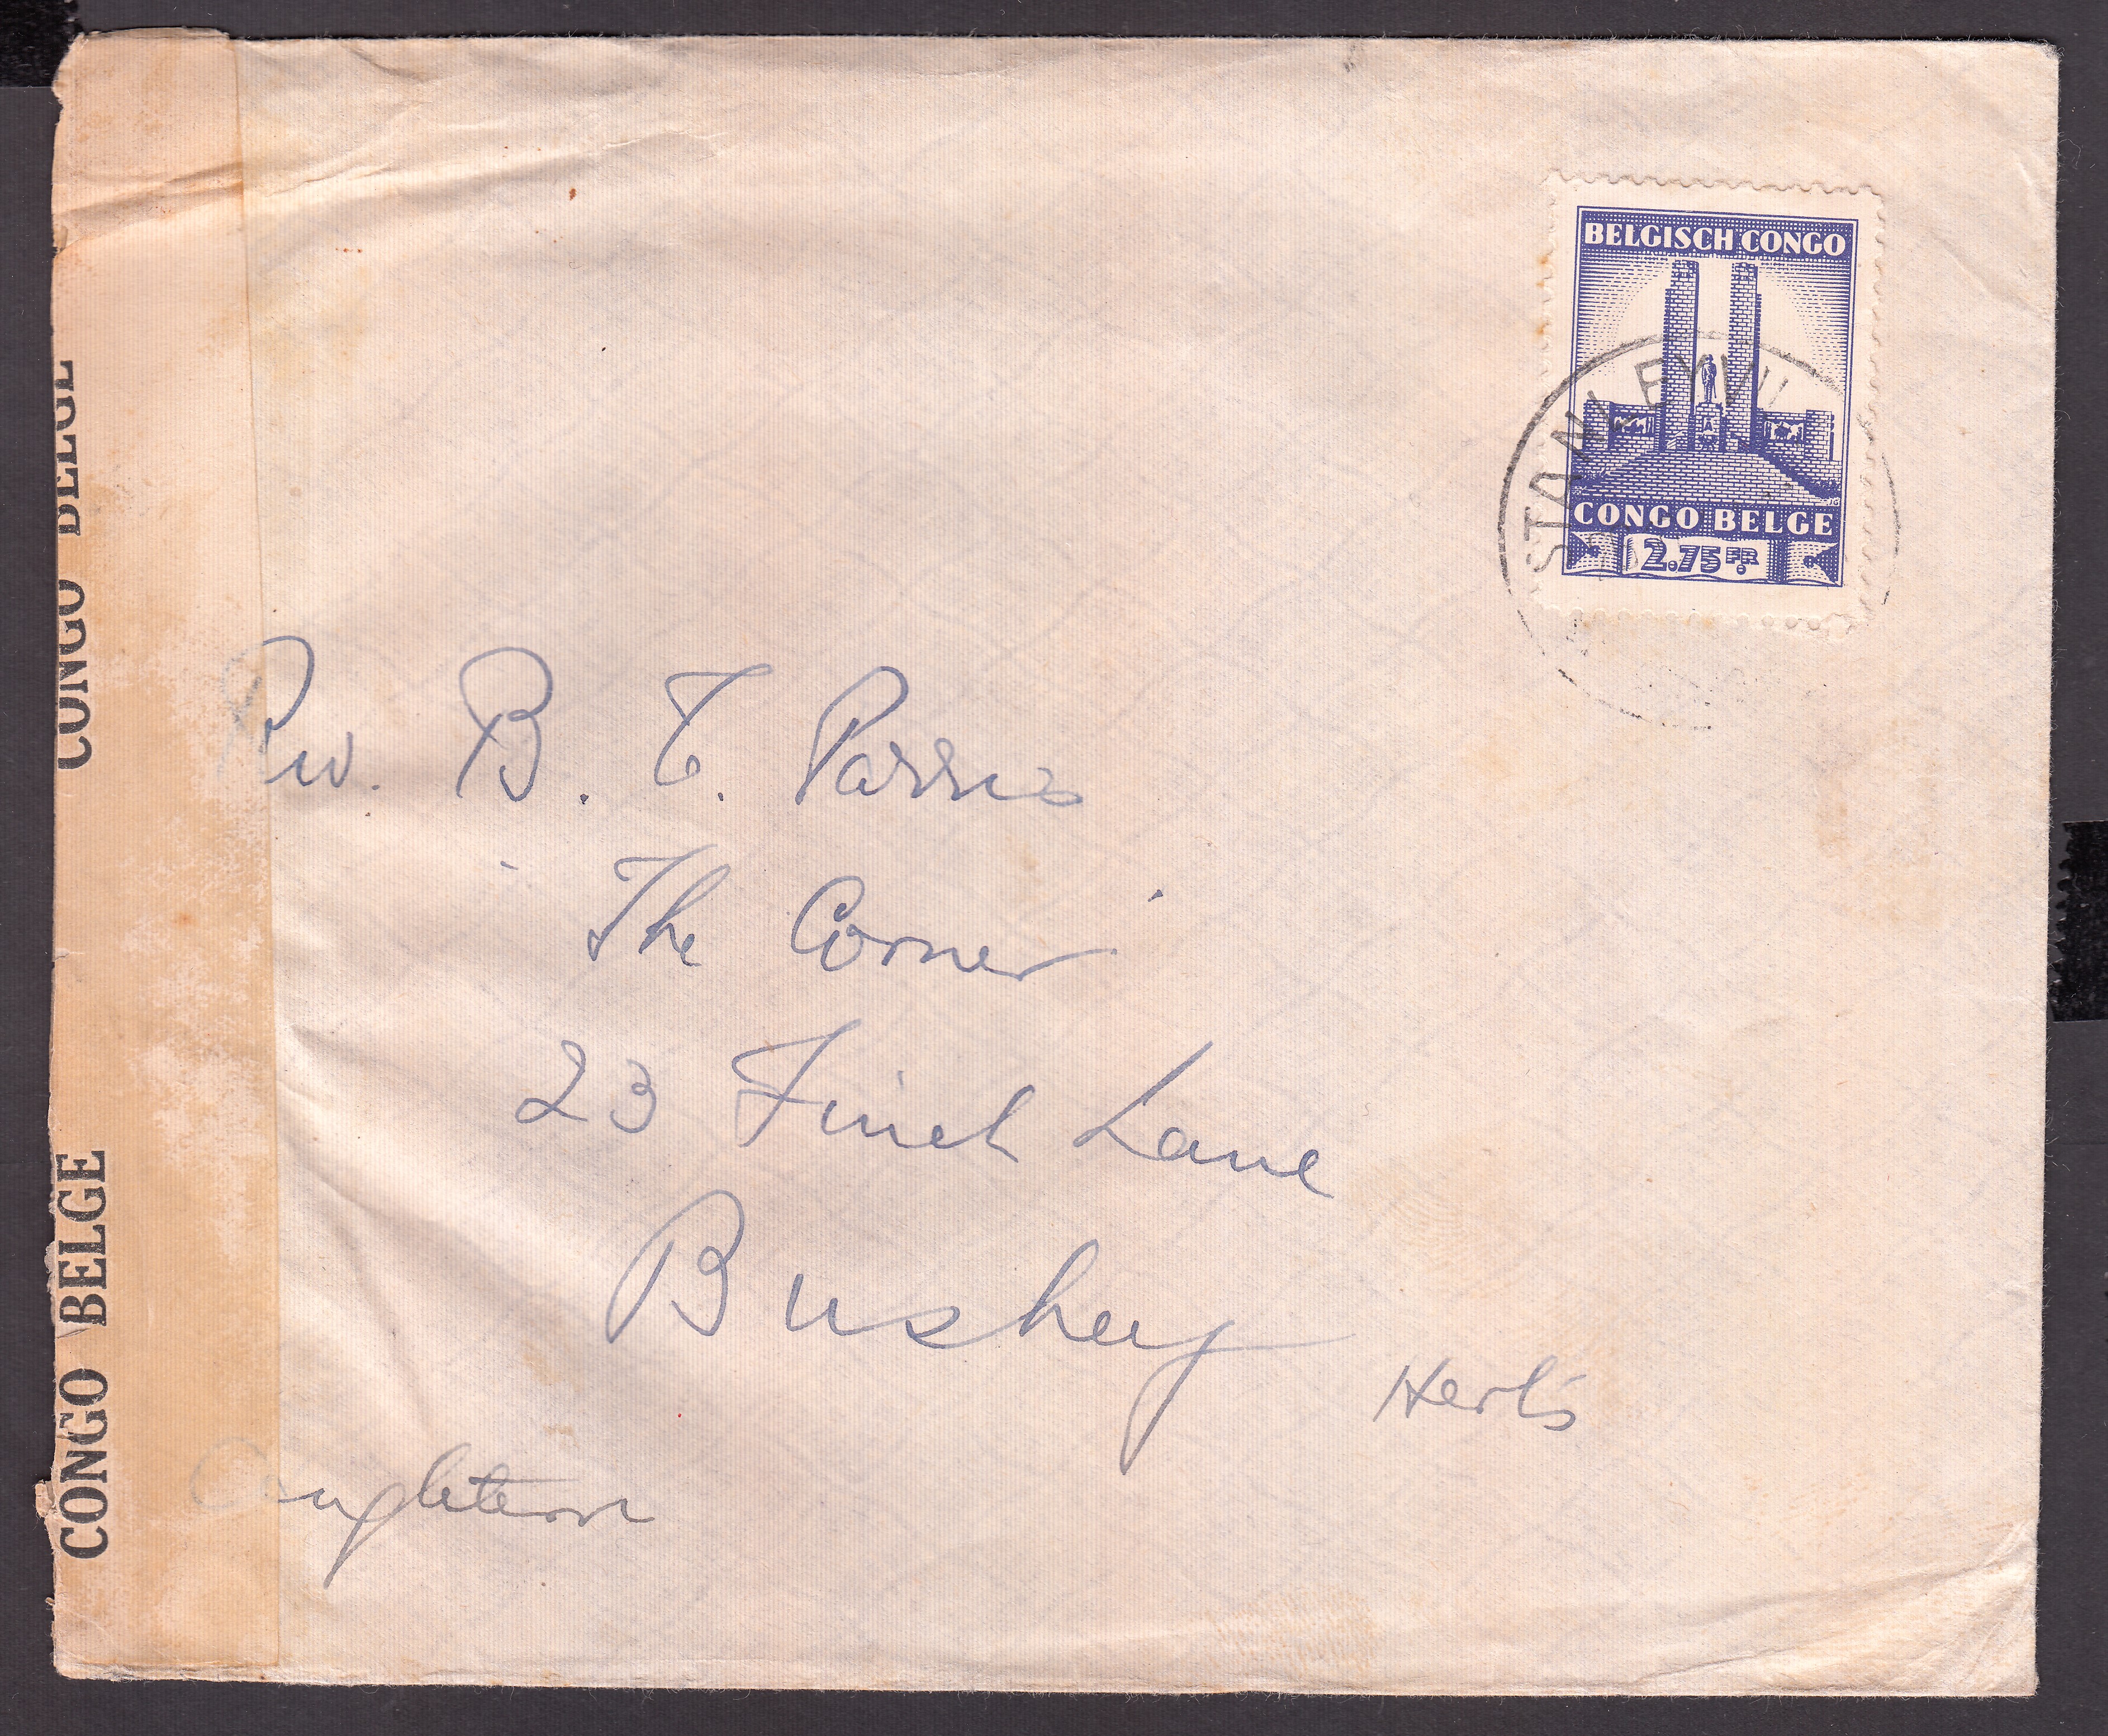 BELGISCH CONGO
CONGO BELGE
2.75 FR.
STANLEYVILL
Rev. B. T. Parris
"The Corner"
23 Finch Lane
Bushey
Herts
Angleterre
CONGO BELGE
CONGO BELGE